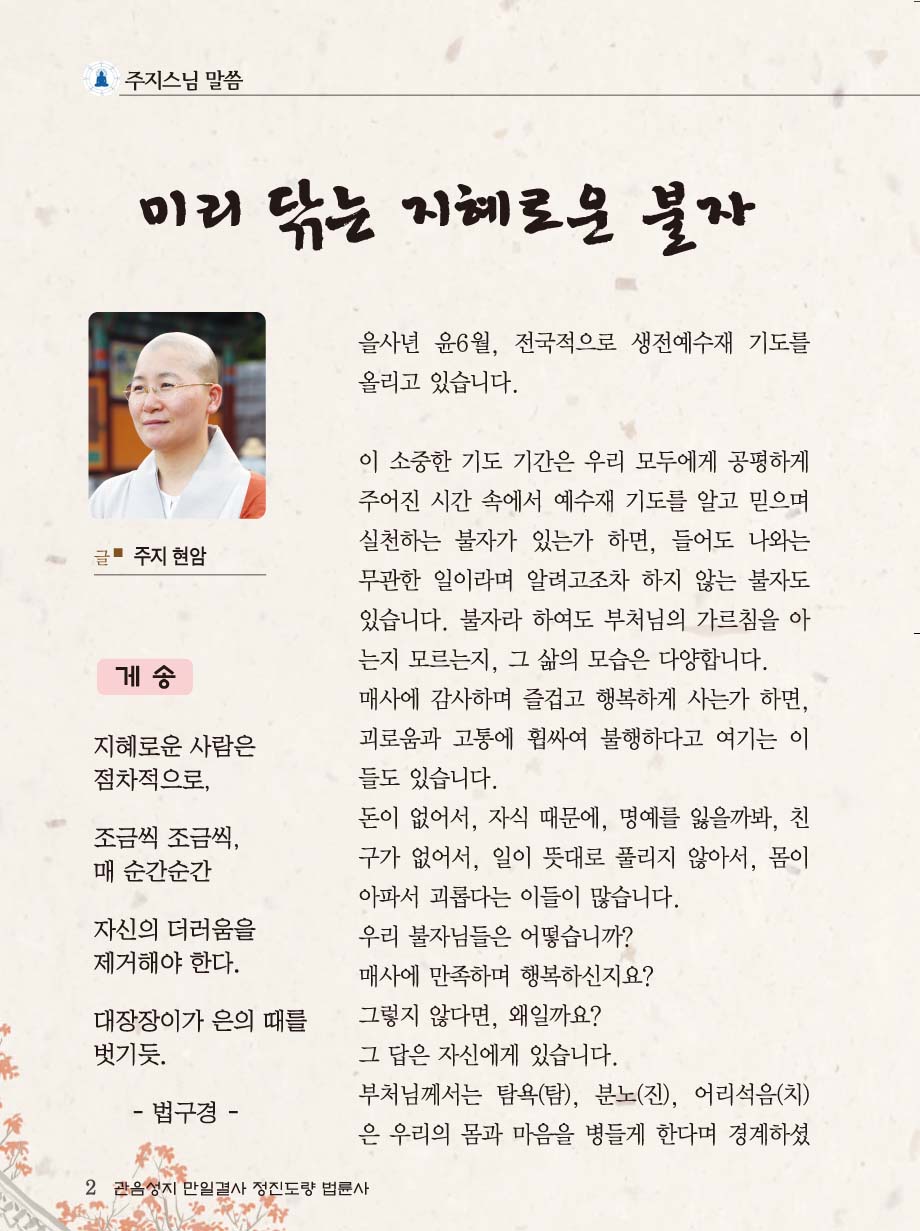 주지스님 말씀
미리 닦는 지혜로운 불자
글■ 주지 현암
게 송
지혜로운 사람은
점차적으로,
조금씩 조금씩,
매 순간순간
자신의 더러움을
제거해야 한다.
대장장이가 은의 때를
벗기듯.
- 법구경 -
을사년 윤6월, 전국적으로 생전예수재 기도를
올리고 있습니다.
이 소중한 기도 기간은 우리 모두에게 공평하게
주어진 시간 속에서 예수재 기도를 알고 믿으며
실천하는 불자가 있는가 하면, 들어도 나와는
무관한 일이라며 알려고조차 하지 않는 불자도
있습니다. 불자라 하여도 부처님의 가르침을 아
는지 모르는지, 그 삶의 모습은 다양합니다.
매사에 감사하며 즐겁고 행복하게 사는가 하면,
괴로움과 고통에 휩싸여 불행하다고 여기는 이
들도 있습니다.
돈이 없어서, 자식 때문에, 명예를 잃을까봐, 친
구가 없어서, 일이 뜻대로 풀리지 않아서, 몸이
아파서 괴롭다는 이들이 많습니다.
우리 불자님들은 어떻습니까?
매사에 만족하며 행복하신지요?
그렇지 않다면, 왜일까요?
그 답은 자신에게 있습니다.
부처님께서는 탐욕(탐), 분노(진), 어리석음(치)
은 우리의 몸과 마음을 병들게 한다며 경계하셨
2 관음성지 만일결사 정진도량 법륜사